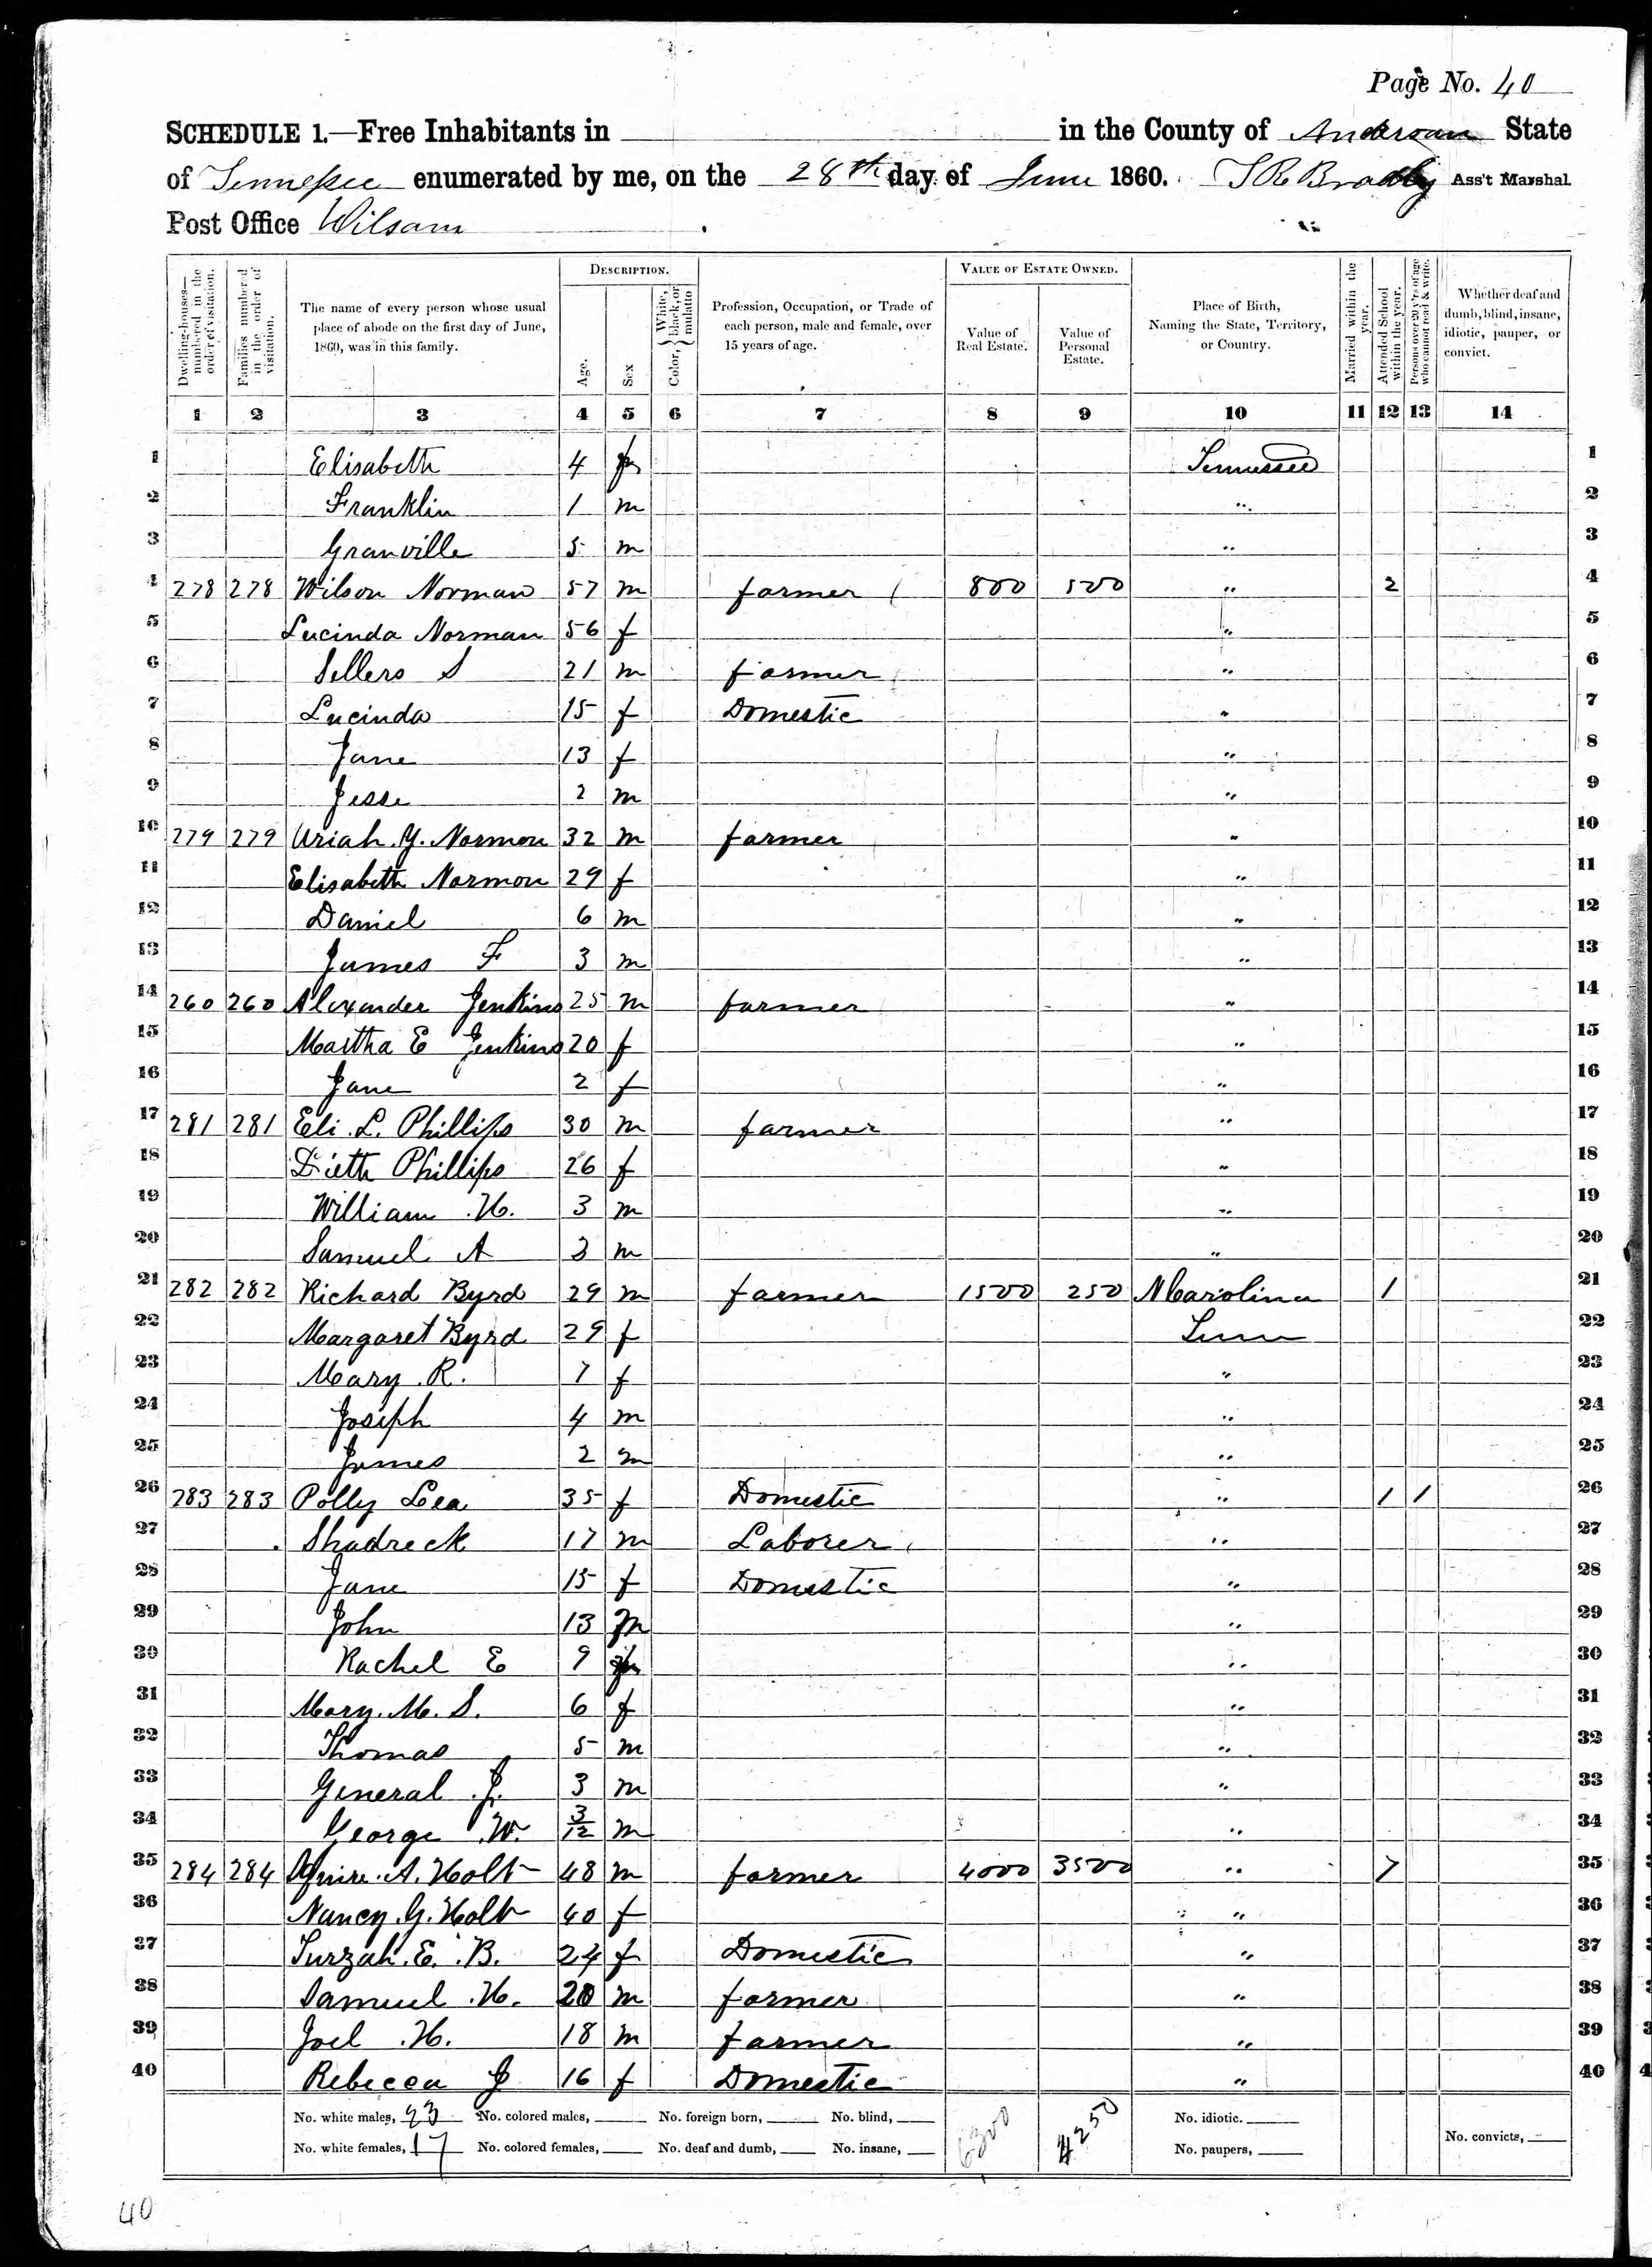 Page No. 40
SCHEDULE 1.—Free Inhabitants in in the County of Anderson State
of Tennessee enumerated by me, on the 28th day of June 1860. Ass't Marshal
Post Office Wilson
Dwelling-houses—numbered in the order of visitation.
Families numbered in the order of visitation.
The name of every person whose usual place of abode on the first day of June, 1860, was in this family.
DESCRIPTION.
Age.
Sex
Color, { White, black, or mulatto
Profession, Occupation, or Trade of each person, male and female, over 15 years of age.
VALUE OF ESTATE OWNED.
Value of Real Estate.
Value of Personal Estate.
Place of Birth, Naming the State, Territory, or Country.
Married within the year.
Attended School within the year.
Persons over 20 y'rs of age who cannot read & write.
Whether deaf and dumb, blind, insane, idiotic, pauper, or convict.
1 2 3 4 5 6 7 8 9 10 11 12 13 14
1 Elisabeth 4 f Tennessee 1
2 Franklin 1 m " 2
3 Granville 5 m " 3
4 278 278 Wilson Norman 57 m farmer 800 500 " 2 4
5 Lucinda Norman 56 f " 5
6 Sellers S 21 m farmer " 6
7 Lucinda 15 f Domestic " 7
8 Jane 13 f " 8
9 Jesse 2 m " 9
10 279 279 Uriah Y. Normon 32 m farmer " 10
11 Elisabeth Normon 29 f " 11
12 Daniel 6 m " 12
13 James F 3 m " 13
14 260 260 Alexander Jenkins 25 m farmer " 14
15 Martha E Jenkins 20 f " 15
16 Jane 2 f " 16
17 281 281 Eli L. Phillips 30 m farmer " 17
18 Phillips 26 f " 18
19 William H. 3 m " 19
20 Samuel A 3 m " 20
21 282 282 Richard Byrd 29 m farmer 1500 250 N Carolina 1 21
22 Margaret Byrd 29 f Tenn 22
23 Mary R. 7 f " 23
24 Joseph 4 m " 24
25 James 2 m " 25
26 283 283 Polly Lea 35 f Domestic " 1 1 26
27 Shadreck 17 m Laborer " 27
28 Jane 15 f Domestic " 28
29 John 13 m " 29
30 Rachel E 9 f " 30
31 Mary. M. S. 6 f " 31
32 Thomas 5 m " 32
33 General J. 3 m " 33
34 George W. 3/12 m " 34
35 284 284 Squire A. Holt 48 m farmer 4000 3500 " 7 35
36 Nancy G. Holt 40 f " 36
37 Turzah. E. B. 24 f Domestic " 37
38 Samuel H. 20 m farmer " 38
39 Joel H. 18 m farmer " 39
40 Rebecca J 16 f Domestic " 40
No. white males, 23 No. colored males, No. foreign born, No. blind, 6300 4250 No. idiotic.
No. white females, 17 No. colored females, No. deaf and dumb, No. insane, No. paupers, No. convicts,
40